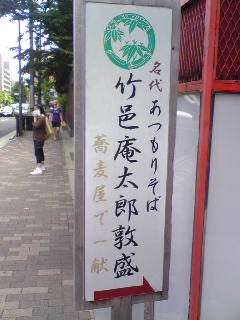 名代あつもりそば
竹邑庵太郎敦盛
蕎麦屋で一献